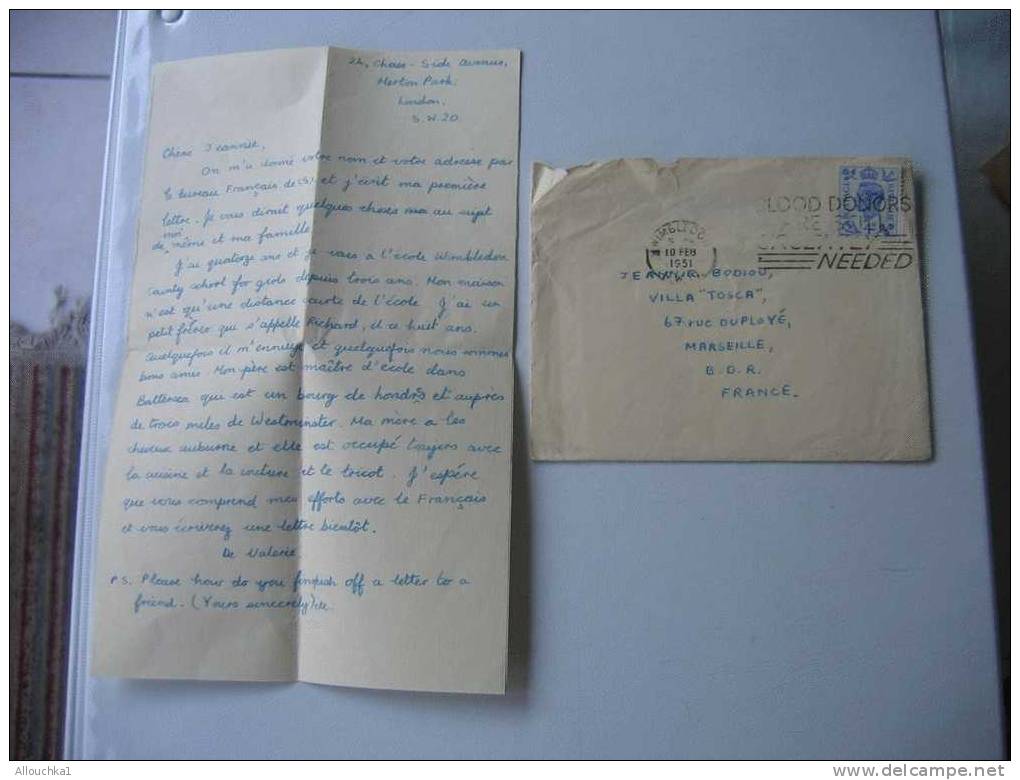 24, Chase-Side Avenue,
Merton Park.
London.
S.W.20.
Chère Jeannie,
On m'a donné votre nom et votre adresse par
le bureau Français de et j'écrit ma première
lettre. Je vous dirait quelques choses au sujet
de moi même et ma famille.
J'ai quatorze ans et je vais a l'école Wimbledon
County school for girls depuis trois ans. Mon maison
n'est qu'une distance courte de l'école. J'ai un
petit frère qui s'appelle Richard, il a huit ans.
Quelquefois il m'ennuye et quelquefois nous sommes
bons amis. Mon père est maître d'école dans
Battersea qui est un bourg de Londres et auprès
de trois miles de Westminster. Ma mère a les
cheveux auburne et elle est occupé toujers avec
la cuisine et la couture et le tricot. J'espére
que vous comprend mes efforts avec le Français
et vous écrirez une lettre bientôt.
De Valerie.
P.S. Please how do you finish off a letter to a
friend. (Yours sincerely) etc.
WIMBLEDON
10 FEB
1951
BLOOD DONORS
ARE STILL
URGENTLY
NEEDED
BODIOU,
VILLA "TOSCA",
67 rue DUPLOYÉ,
MARSEILLE,
B.D.R.
FRANCE.
Allouchka1